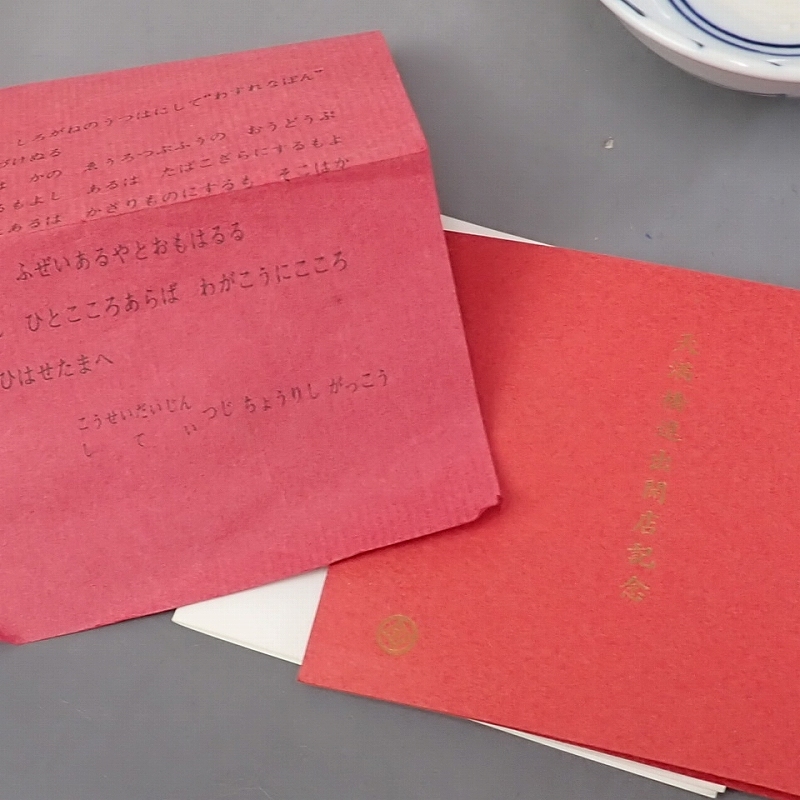 しろがねのうつはにして“わすれなぼん”
がけぬる
は かの ゑうろつぷふうの おうどうぶ
るもよし あるは たばこざらにするもよ
あるは かざりものにするも そこはか
ふぜいあるやとおもはるる
ひとこころあらば わがこうにこころ
ひはせたまへ
こうせいだいじん
して い つじ ちょうりし がっこう
開店記念